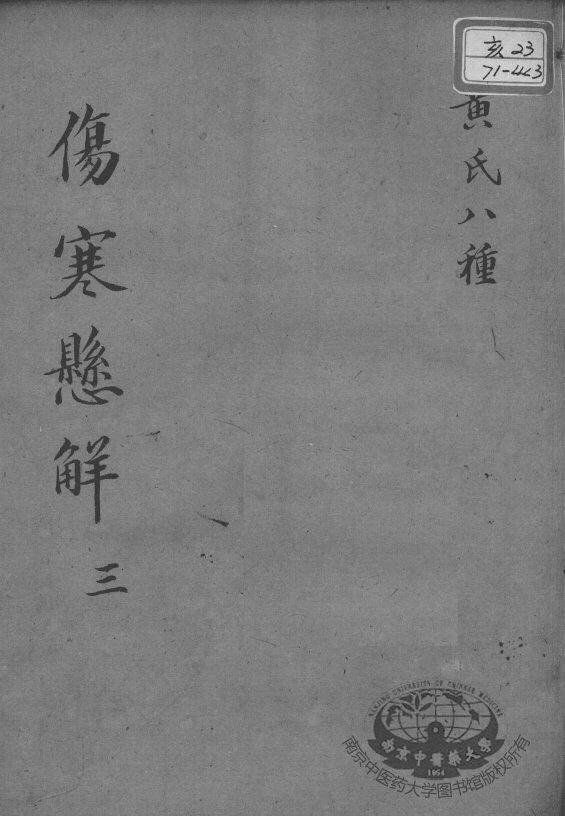 亥 23
71-443
黄氏八種
傷寒懸解
三
NANJING UNIVERSITY OF CHINESE MEDICINE
南京中醫藥大學
1954
南京中医药大学图书馆版权所有